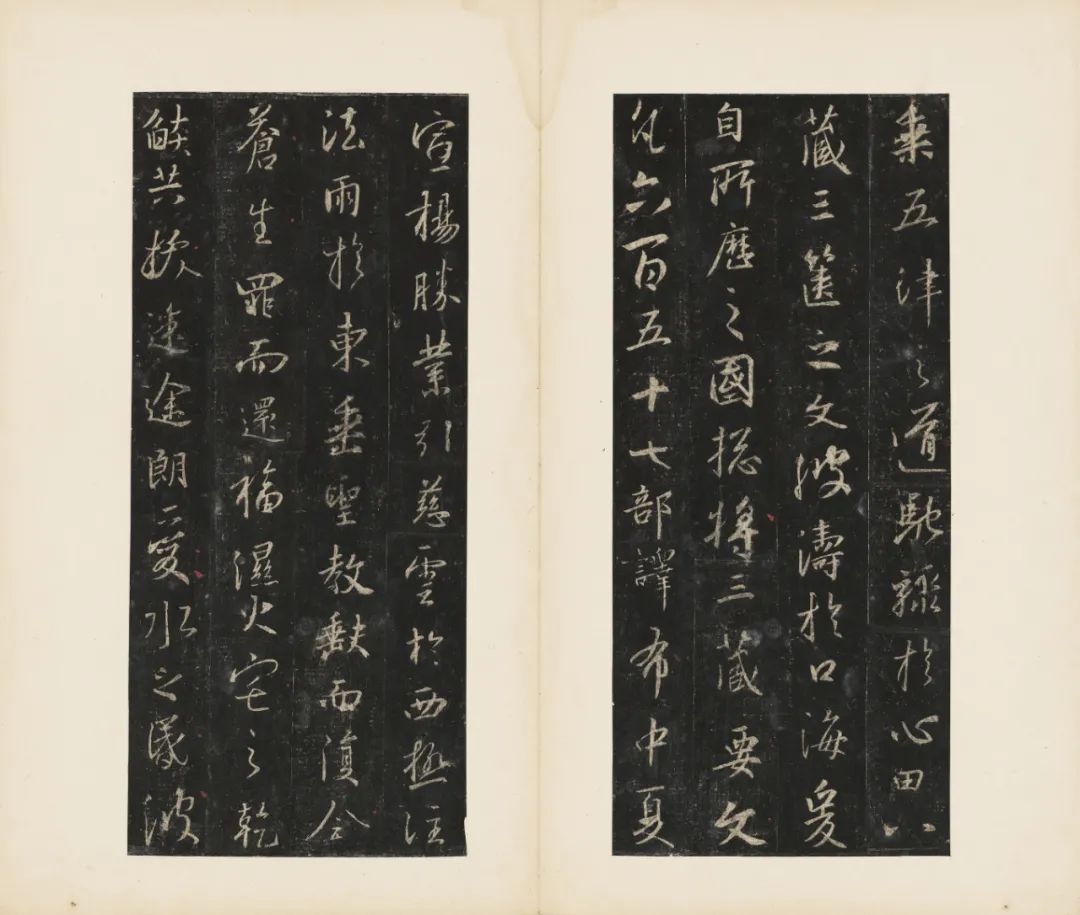 乘五津之道馳驟於心田八
藏三篋之文波濤於口海爰
自所歷之國揔將三藏要文
凡六百五十七部譯布中夏
宣揚勝業引慈雲於西極注
法雨於東垂聖教缺而復全
蒼生罪而還福濕火宅之乾
燄共拔迷途朗愛水之昏波